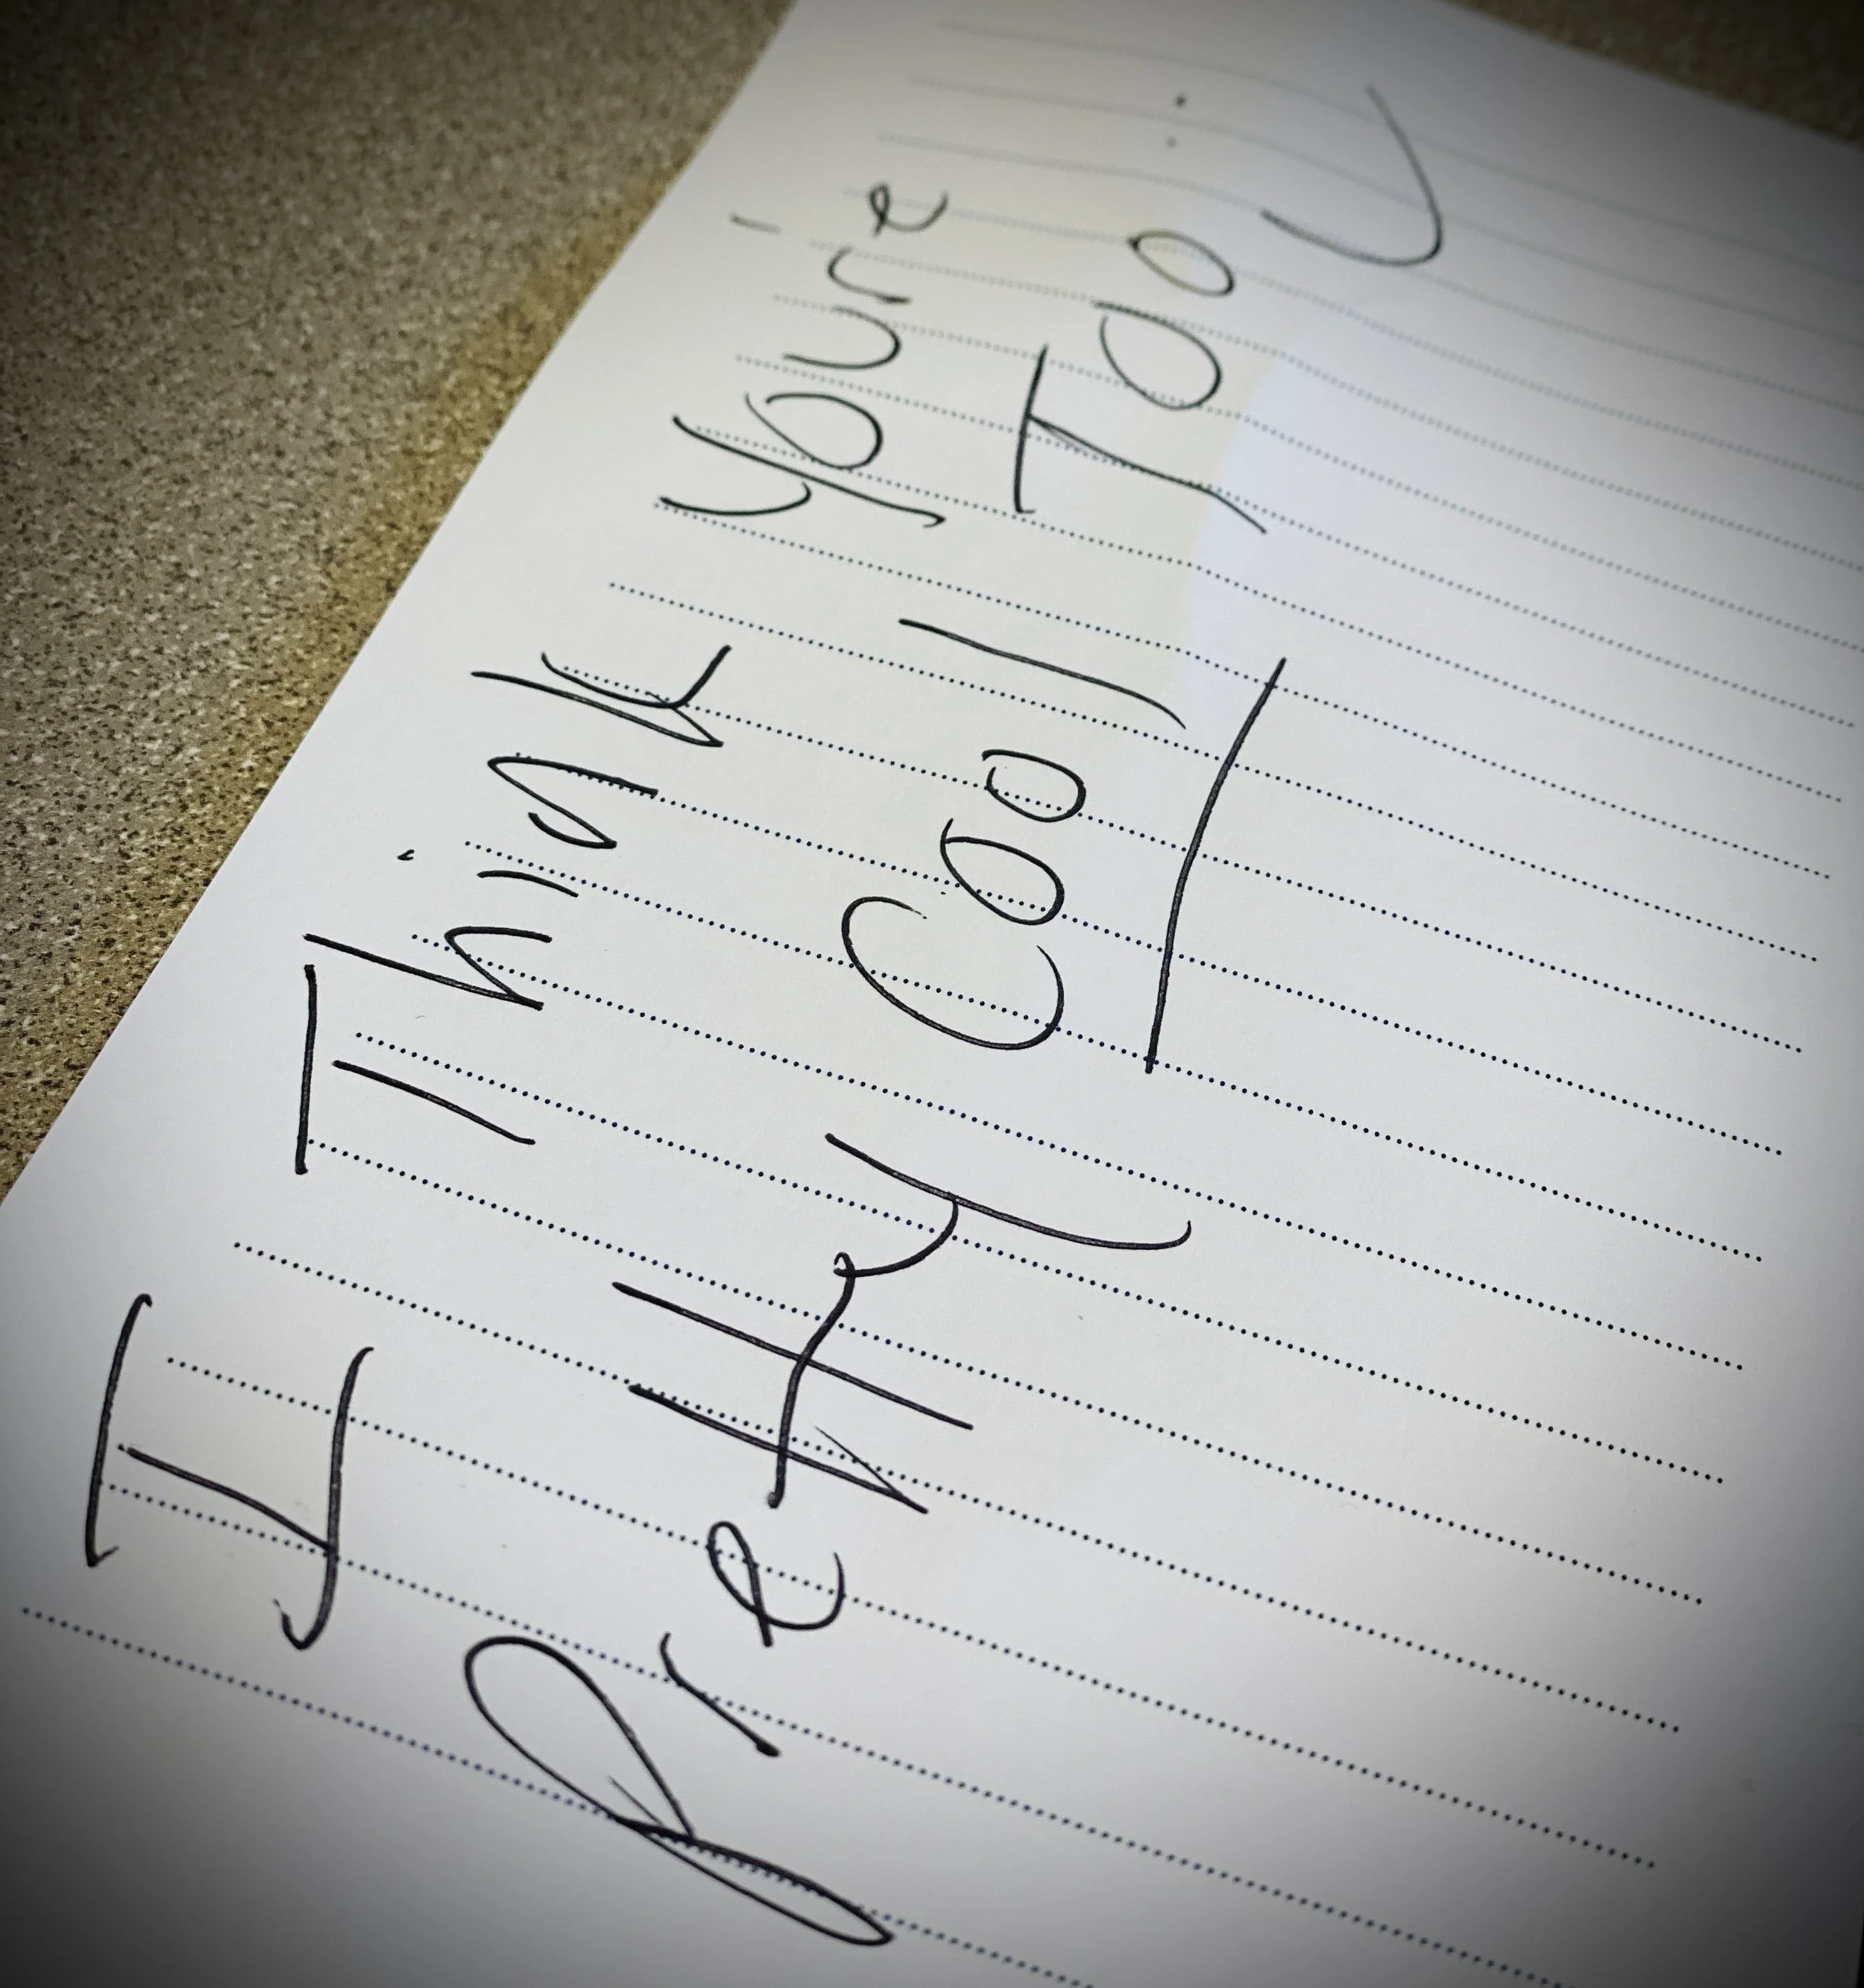 I Think you're
Pretty Cool Too :)